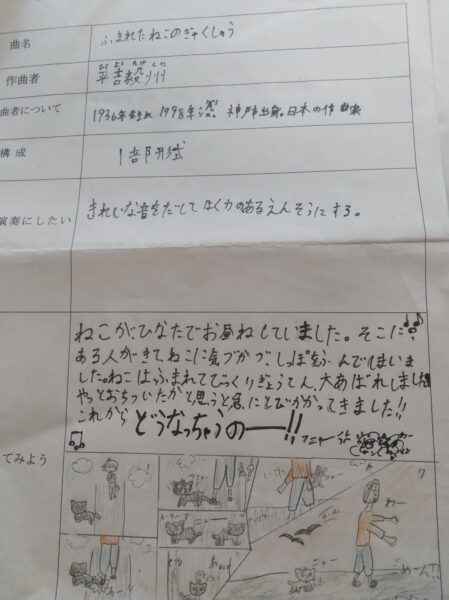 曲名
ふまれたねこのぎゃくしゅう
作曲者
平吉毅州
曲者について
1936年生まれ 1998年没。神戸市出身。日本の作曲家
構成
1部形式
演奏にしたい
きれいな音をだしてはく力のあるえんそうにする。
ねこが、ひなたでお昼ねしていました。そこに、
ある人がきて、ねこに気づかず、しっぽをふんでしまいま
した。ねこは、ふまれてびっくりぎょうてん、大あばれしました。
やっとおちついたかと思うと急にとびかかってきました!!
これから どうなっちゃうのー!!
てみよう
7
わー
ニャー
ごめーん!!